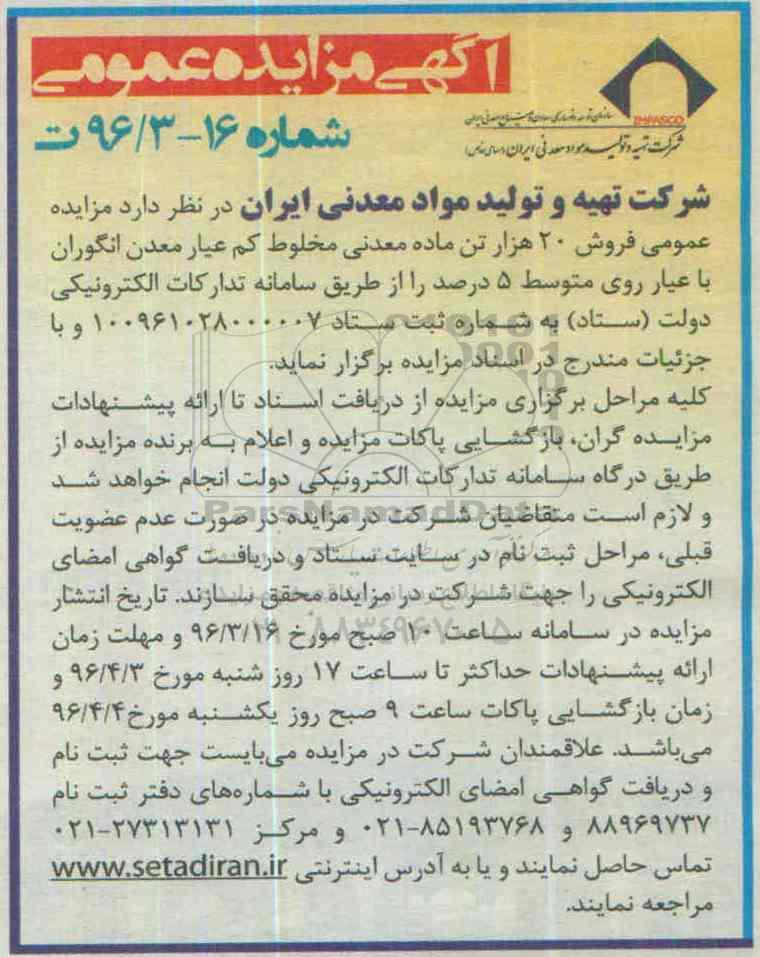 آگهی مزایده عمومی
شماره ۱۶-۹۶/۳ ت
IMPASCO
شرکت تهیه و تولید مواد معدنی ایران (سهامی خاص)
شرکت تهیه و تولید مواد معدنی ایران در نظر دارد مزایده
عمومی فروش ۲۰ هزار تن ماده معدنی مخلوط کم عیار معدن انگوران
با عیار روی متوسط ۵ درصد را از طریق سامانه تدارکات الکترونیکی
دولت (ستاد) به شماره ثبت ستاد ۱۰۰۹۶۱۰۲۸۰۰۰۰۰۷ و با
جزئیات مندرج در اسناد مزایده برگزار نماید.
کلیه مراحل برگزاری مزایده از دریافت اسناد تا ارائه پیشنهادات
مزایده گران، بازگشایی پاکات مزایده و اعلام به برنده مزایده از
طریق درگاه سامانه تدارکات الکترونیکی دولت انجام خواهد شد
و لازم است متقاضیان شرکت در مزایده در صورت عدم عضویت
قبلی، مراحل ثبت نام در سایت ستاد و دریافت گواهی امضای
الکترونیکی را جهت شرکت در مزایده محقق سازند. تاریخ انتشار
مزایده در سامانه ساعت ۱۰ صبح مورخ ۹۶/۳/۱۶ و مهلت زمان
ارائه پیشنهادات حداکثر تا ساعت ۱۷ روز شنبه مورخ ۹۶/۴/۳ و
زمان بازگشایی پاکات ساعت ۹ صبح روز یکشنبه مورخ ۹۶/۴/۴
می‌باشد. علاقمندان شرکت در مزایده می‌بایست جهت ثبت نام
و دریافت گواهی امضای الکترونیکی با شماره‌های دفتر ثبت نام
۸۸۹۶۹۷۳۷ و ۸۵۱۹۳۷۶۸-۰۲۱ و مرکز ۲۷۳۱۳۱۳۱-۰۲۱
تماس حاصل نمایند و یا به آدرس اینترنتی www.setadiran.ir
مراجعه نمایند.
ParsNamadData